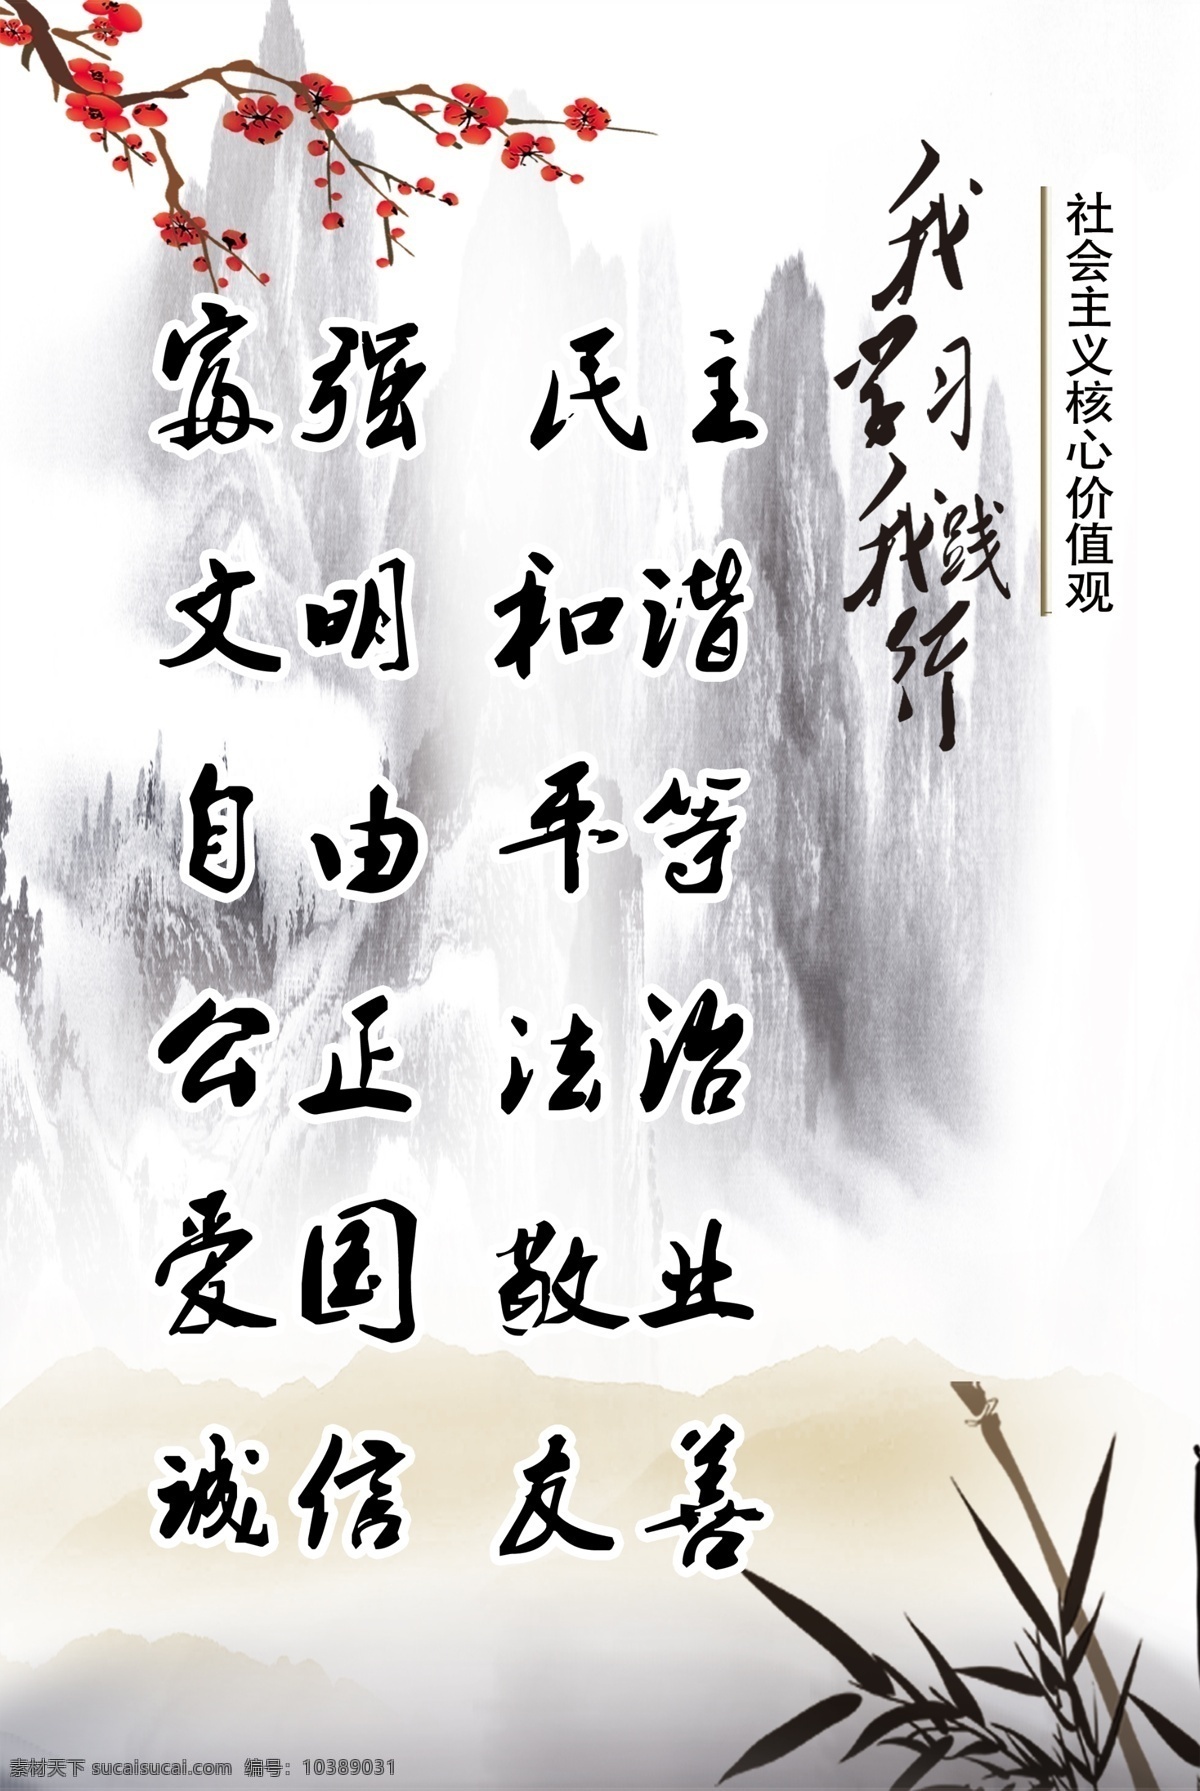 社会主义核心价值观
我学习我践行
富强 民主
文明 和谐
自由 平等
公正 法治
爱国 敬业
诚信 友善
素材天下 sucaisucai.com 编号：10389031